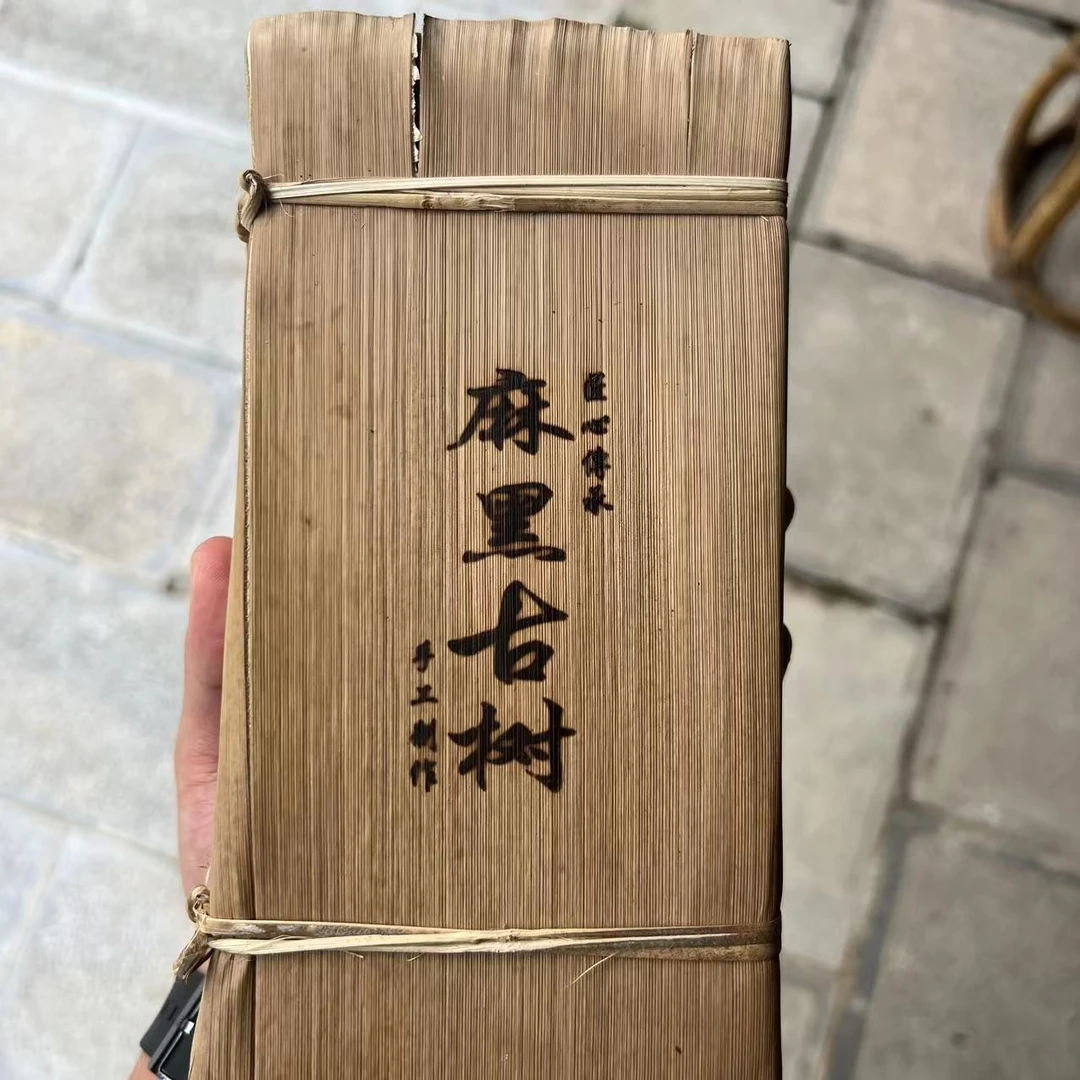 匠心传承
麻黑古树
手工制作